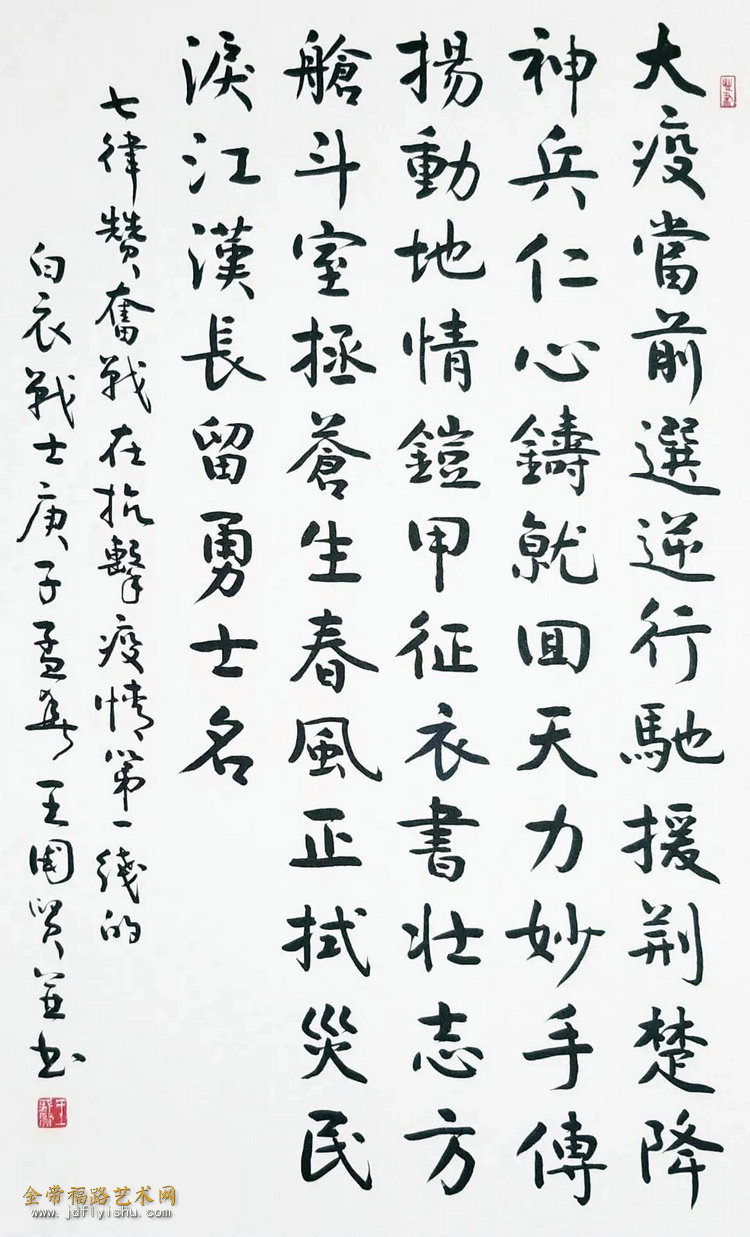 大疫當前選逆行馳援荆楚降
神兵仁心鑄就回天力妙手傳
揚動地情鎧甲征衣書壯志方
艙斗室拯蒼生春風正拭災民
淚江漢長留勇士名
七律贊奮戰在抗擊疫情第一綫的
白衣戰士庚子孟春王國賢並书
金带福路艺术网
www.jdflyishu.com